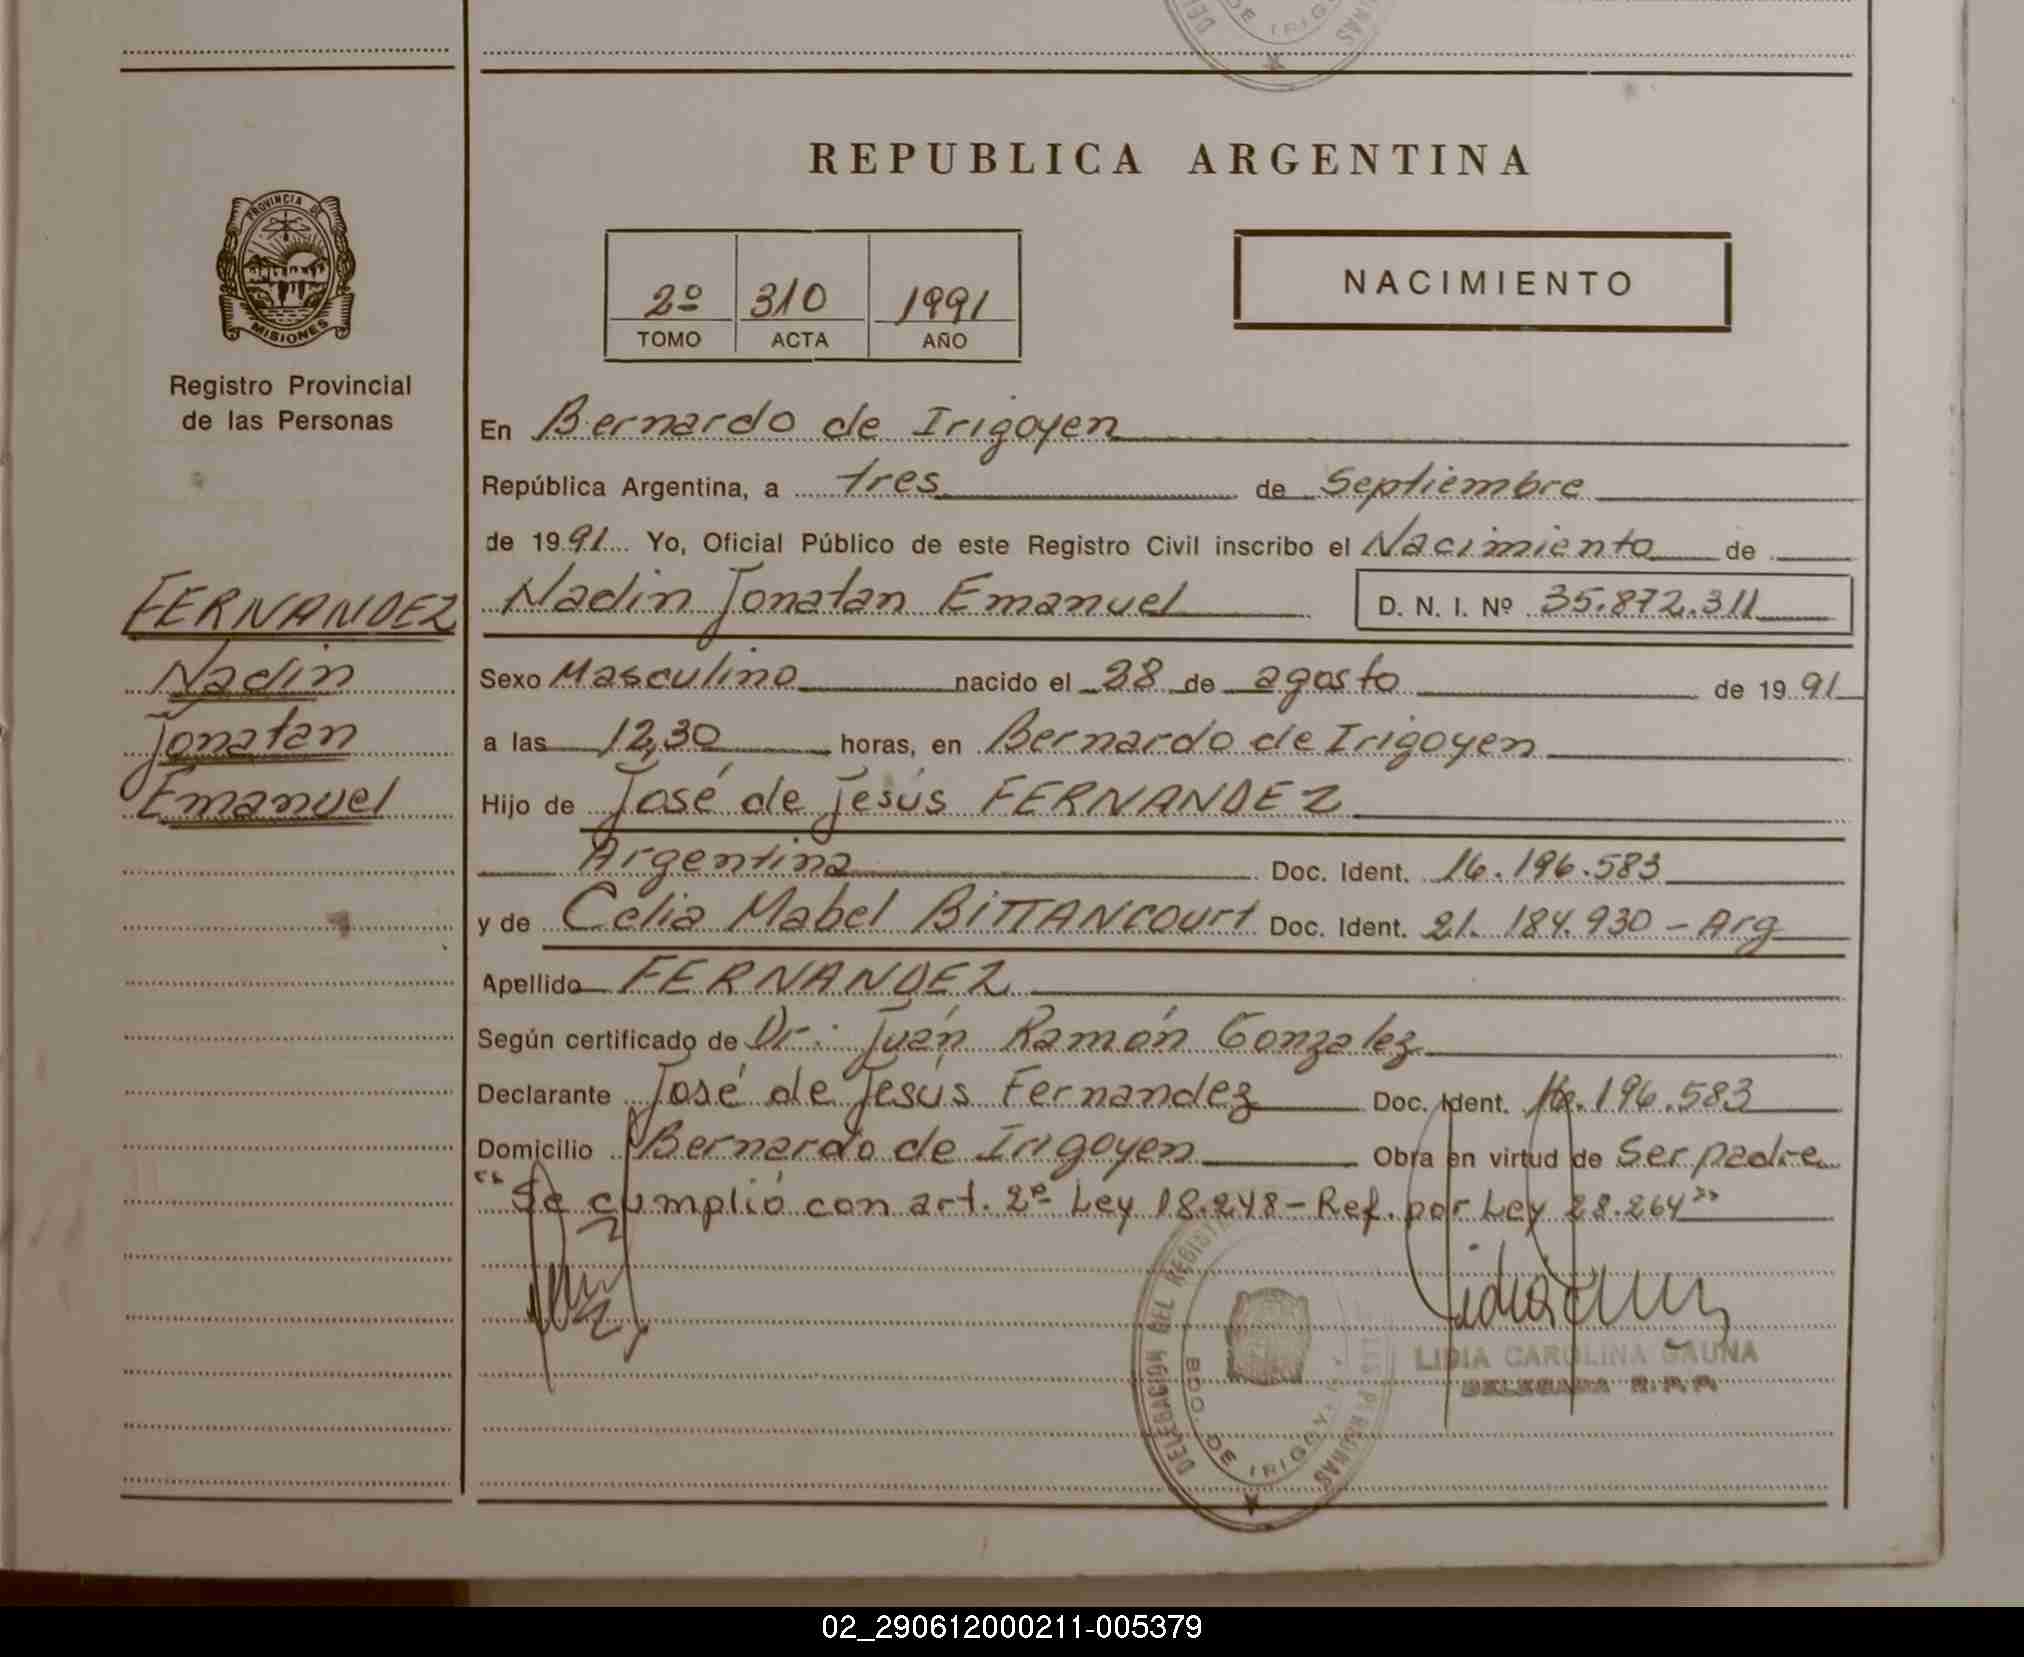 DEL
DE IRIG
NAS
REPUBLICA ARGENTINA
PROVINCIA DE
MISIONES
Registro Provincial
de las Personas
2º 310 1991
TOMO ACTA AÑO
NACIMIENTO
En Bernardo de Irigoyen
República Argentina, a tres de Septiembre
de 1991 Yo, Oficial Público de este Registro Civil inscribo el Nacimiento de
Nadin Jonatan Emanuel D. N. I. Nº 35.872.311
FERNANDEZ
Nadin
Jonatan
Emanuel
Sexo Masculino nacido el 28 de agosto de 1991
a las 12,30 horas, en Bernardo de Irigoyen
Hijo de José de Jesús FERNANDEZ
Argentina Doc. Ident. 16.196.583
y de Celia Mabel BITTANCOURT Doc. Ident. 21.184.930 - Arg
Apellido FERNANDEZ
Según certificado de Dr. Juán Ramón Gonzalez
Declarante José de Jesús Fernandez Doc. Ident. 16.196.583
Domicilio Bernardo de Irigoyen Obra en virtud de Ser padre
"Se cumplió con art. 2º Ley 18.248 - Ref. por Ley 23.264"
DELEGACION DEL REGIST
LAS PERSONAS
BDO. DE IRIGOY
LIDIA CAROLINA GAUNA
DELEGADA R.P.P.
02_290612000211-005379